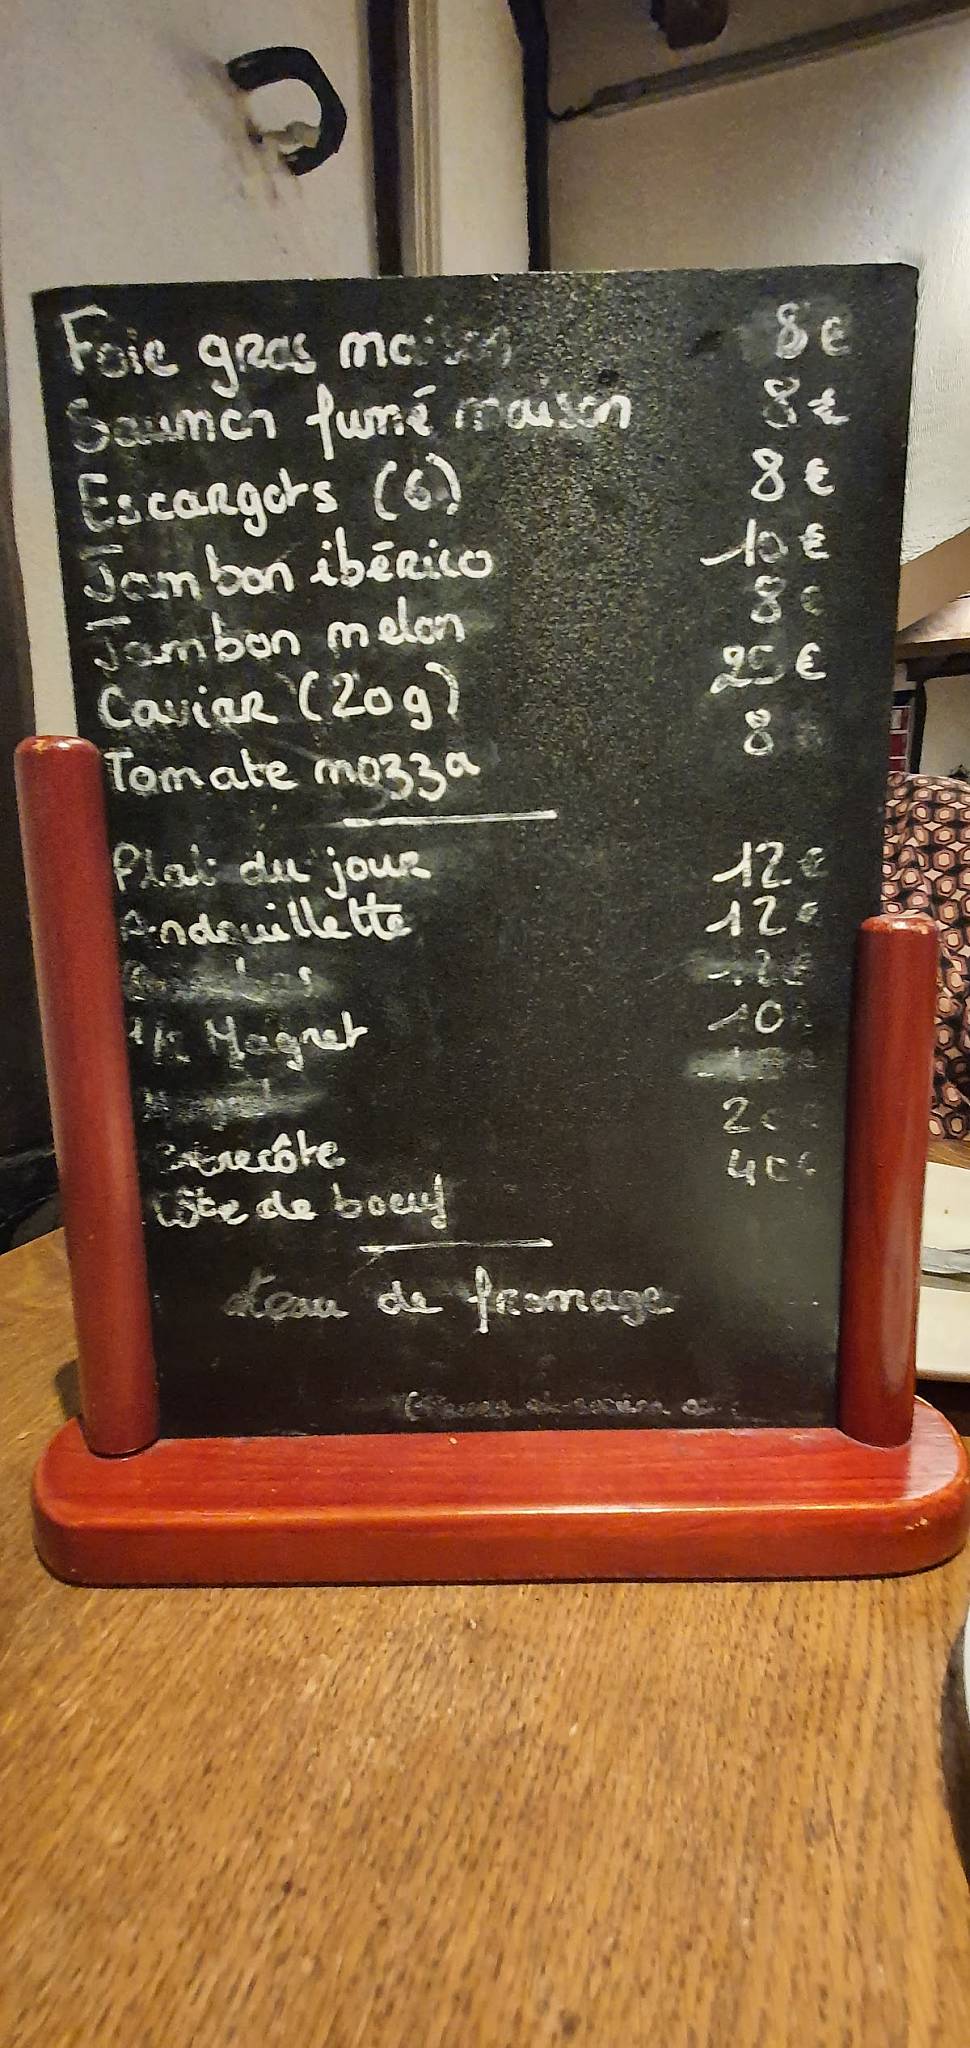 Foie gras maison 8€
Saumon fumé maison 8€
Escargots (6) 8€
Jambon ibérico 10€
Jambon melon 8€
Caviar (20g) 25€
Tomate mozza 8
Plat du jour 12€
Andouillette 12€
12€
1/2 Magret 10
Magret
Entrecôte 20€
Côte de boeuf 40€
de fromage